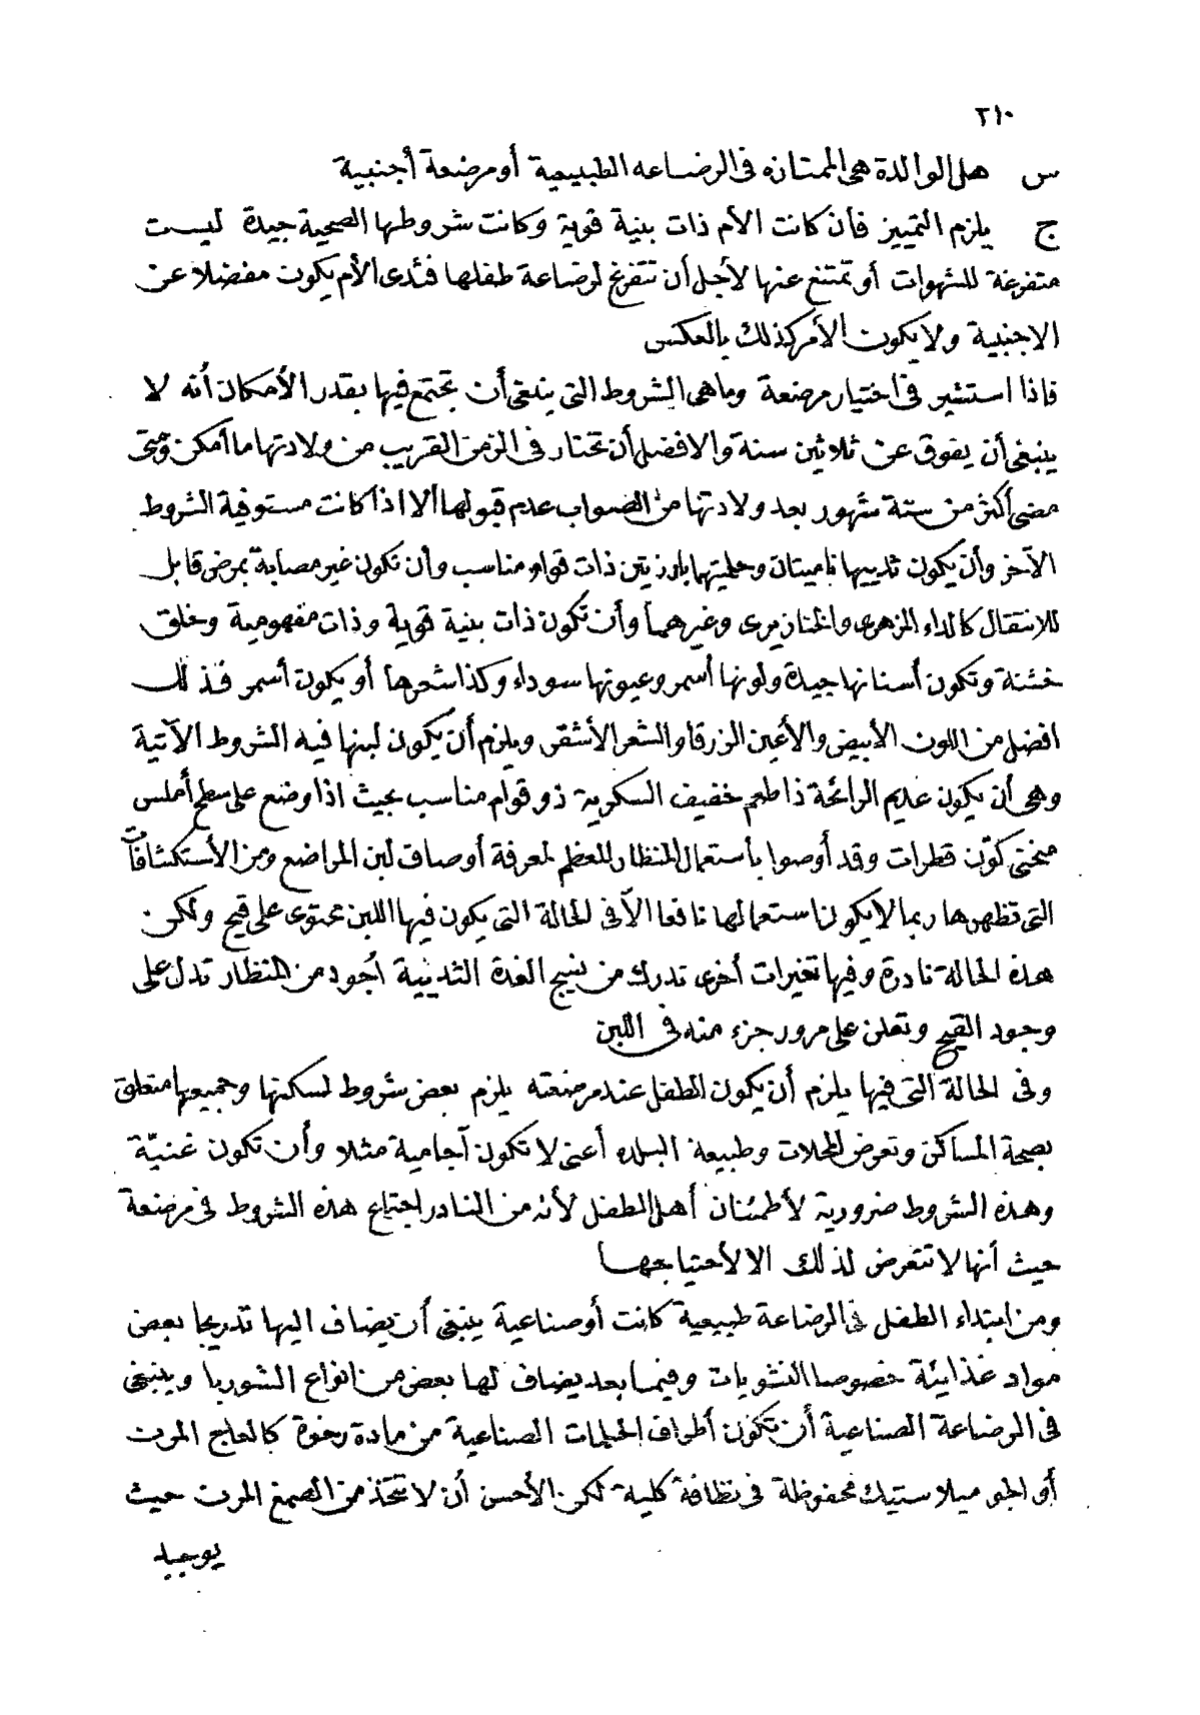 ٢١٠
س هل الوالدة هي الممتازه فى الرضاعه الطبيعية أو مرضعة أجنبية
ج يلزم التمييز فأن كانت الأم ذات بنية قوية وكانت شروطها الصحية جيدة ليست
متفرغة للشهوات أو تمتنع عنها لأجل أن تتفرغ لرضاعة طفلها فثدى الأم يكون مفضلا عن
الاجنبية ولا يكون الأمر كذلك بالعكس
فاذا استشير فى اختيار مرضعة وما هى الشروط التى ينبغى أن تجتمع فيها بقدر الأمكان أنه لا
ينبغى أن يفوق عن ثلاثين سنة والافضل أن تختار فى الزمن القريب من ولادتها ما أمكن ومتى
مضى أكثر من ستة شهور بعد ولادتها من الصواب عدم قبولها ألا اذا كانت مستوفية الشروط
الآخر وأن يكون ثدييها ناميتان وحلمتيهما بارزتين ذات قوام مناسب وأن تكون غير مصابة بمرض قابل
للانتقال كالداء الزهرى والخنازيرى وغيرهما وأن تكون ذات بنية قوية وذات مفهومية وخلق
خشنة وتكون أسنانها جيدة ولونها أسمر وعيونها سوداء وكذا شعرها أو يكون أسمر فذلك
افضل من اللون الأبيض والأعين الزرقا والشعر الأشقر ويلزم أن يكون لبنها فيه الشروط الآتية
وهى أن يكون عديم الرائحة ذا طعم خفيف السكرية ذو قوام مناسب بحيث اذا وضع على سطح أملس
منحنى كوّن قطرات وقد أوصوا بأستعمال المنظار المعظم لمعرفة أوصاف لبن المراضع ومن الأستكشافات
التى تظهرها ربما لا يكون استعمالها نافعا الآ فى الحالة التى يكون فيها اللبن محتوى على قيح ولكن
هذه الحالة نادرة وفيها تغيرات أخرى تدرك من نسيج الغدة الثديية أجود من المنظار تدل على
وجود القيح وتعلن على مرور جزء منه فى اللبن
وفى الحالة التى فيها يلزم أن يكون الطفل عند مرضعته يلزم بعض شروط لسكنها وجميعها متعلق
بصحة المساكن وتعرض المحلات وطبيعة البلده أعنى لا تكون آجامية مثلا وأن تكون غنيّة
وهذه الشروط ضرورية لأطمئنان أهل الطفل لأنه من النادر اجتماع هذه الشروط فى مرضعة
حيث أنها لا تتعرض لذلك الا لأحتياجها
ومن ابتداء الطفل فى الرضاعة طبيعية كانت أو صناعية ينبغى أن يضاف اليها تدريجا بعض
مواد غذائية خصوصا النشويات وفيما بعد يضاف لها بعض من انواع الشوربا وينبغى
فى الرضاعة الصناعية أن تكون أطراف الحلمات الصناعية من مادة رخوة كالعاج المرن
أو الجو ميلاستيك محفوظة فى نظافة كلية لكن الأحسن أن لا تتخذ من الصمغ المرن حيث
يوجد